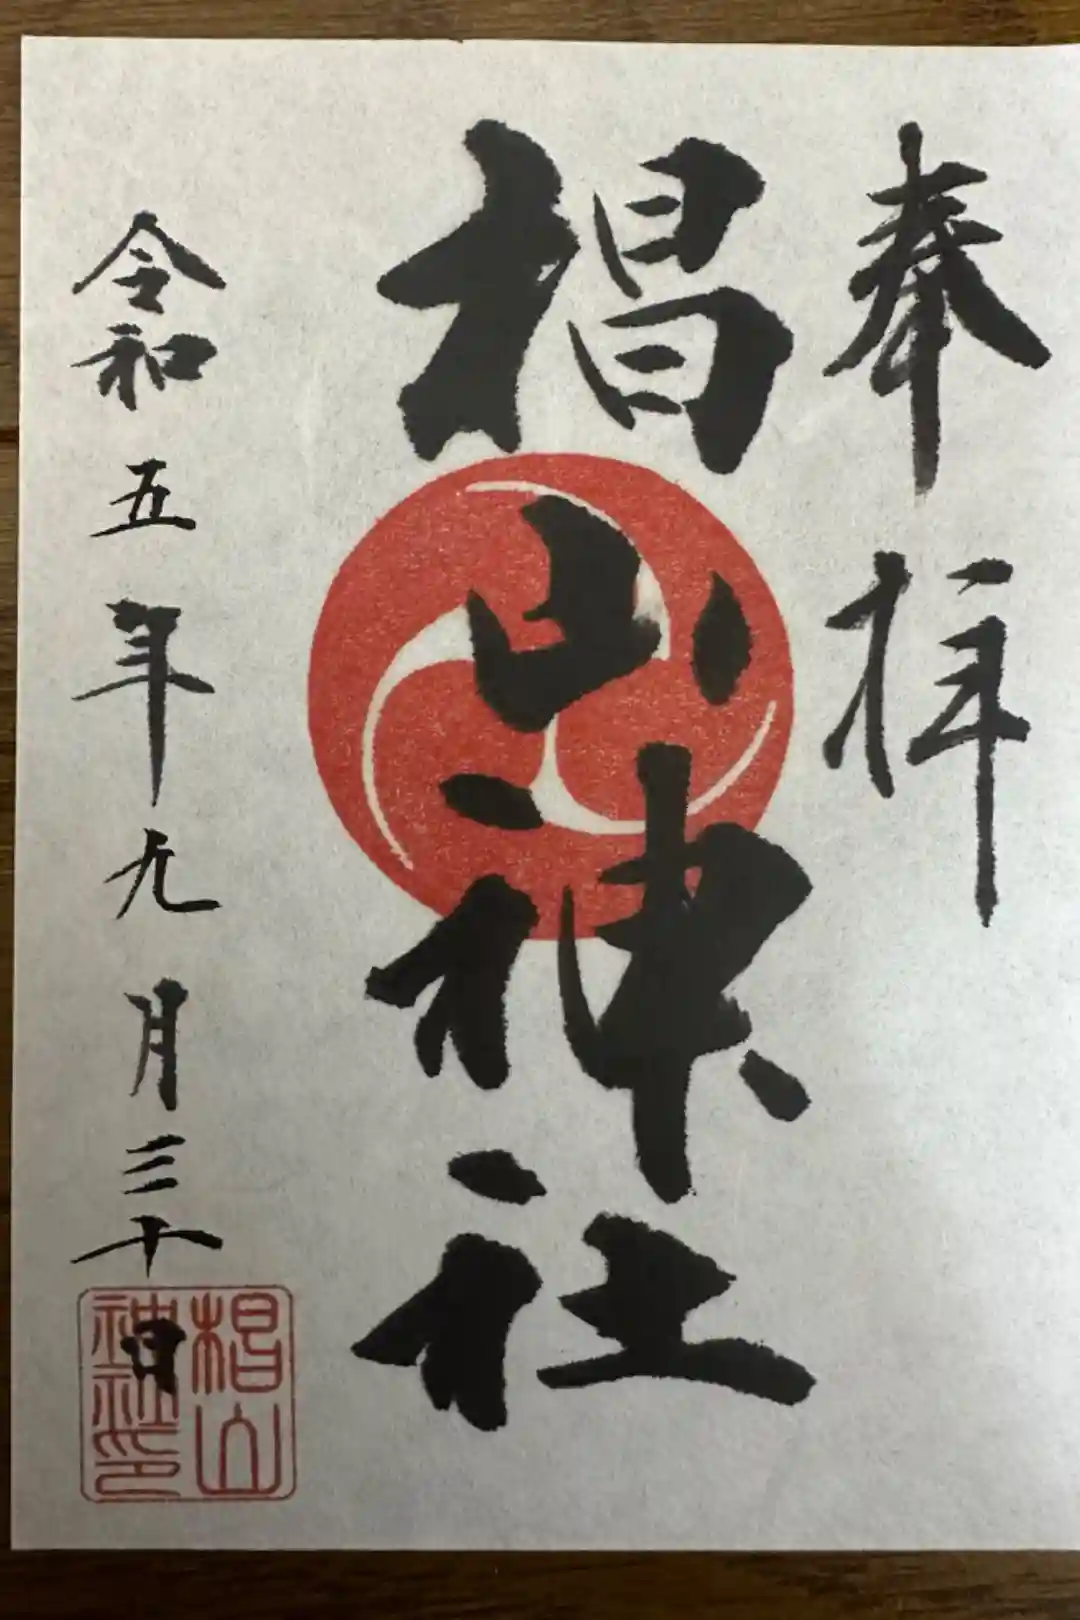 奉拝
椙山神社
令和五年九月三十日
椙山
神社印